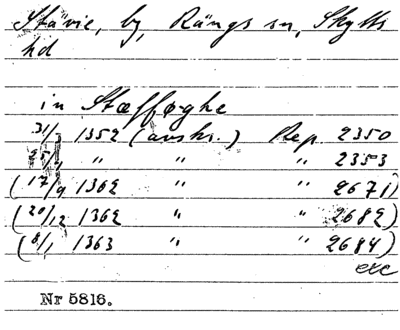 Stävie, by, Rängs sn, Skytts
hd
in Stæfføghe
31/1 1352 (avskr.) Rep. 2350
25/1 " " " 2353
(17/9 1362 " " 2671)
(20/12 1362 " " 2682)
(6/1 1363 " " 2684)
exc
Nr 5816.